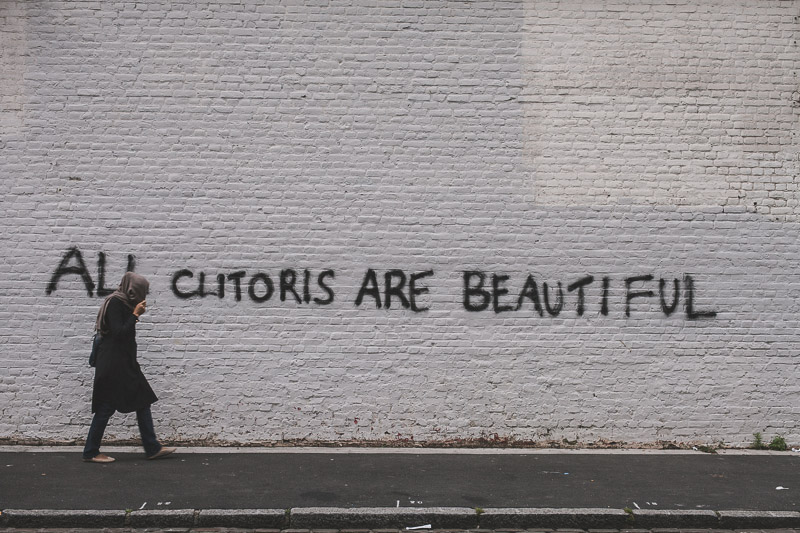 ALL CLITORIS ARE BEAUTIFUL